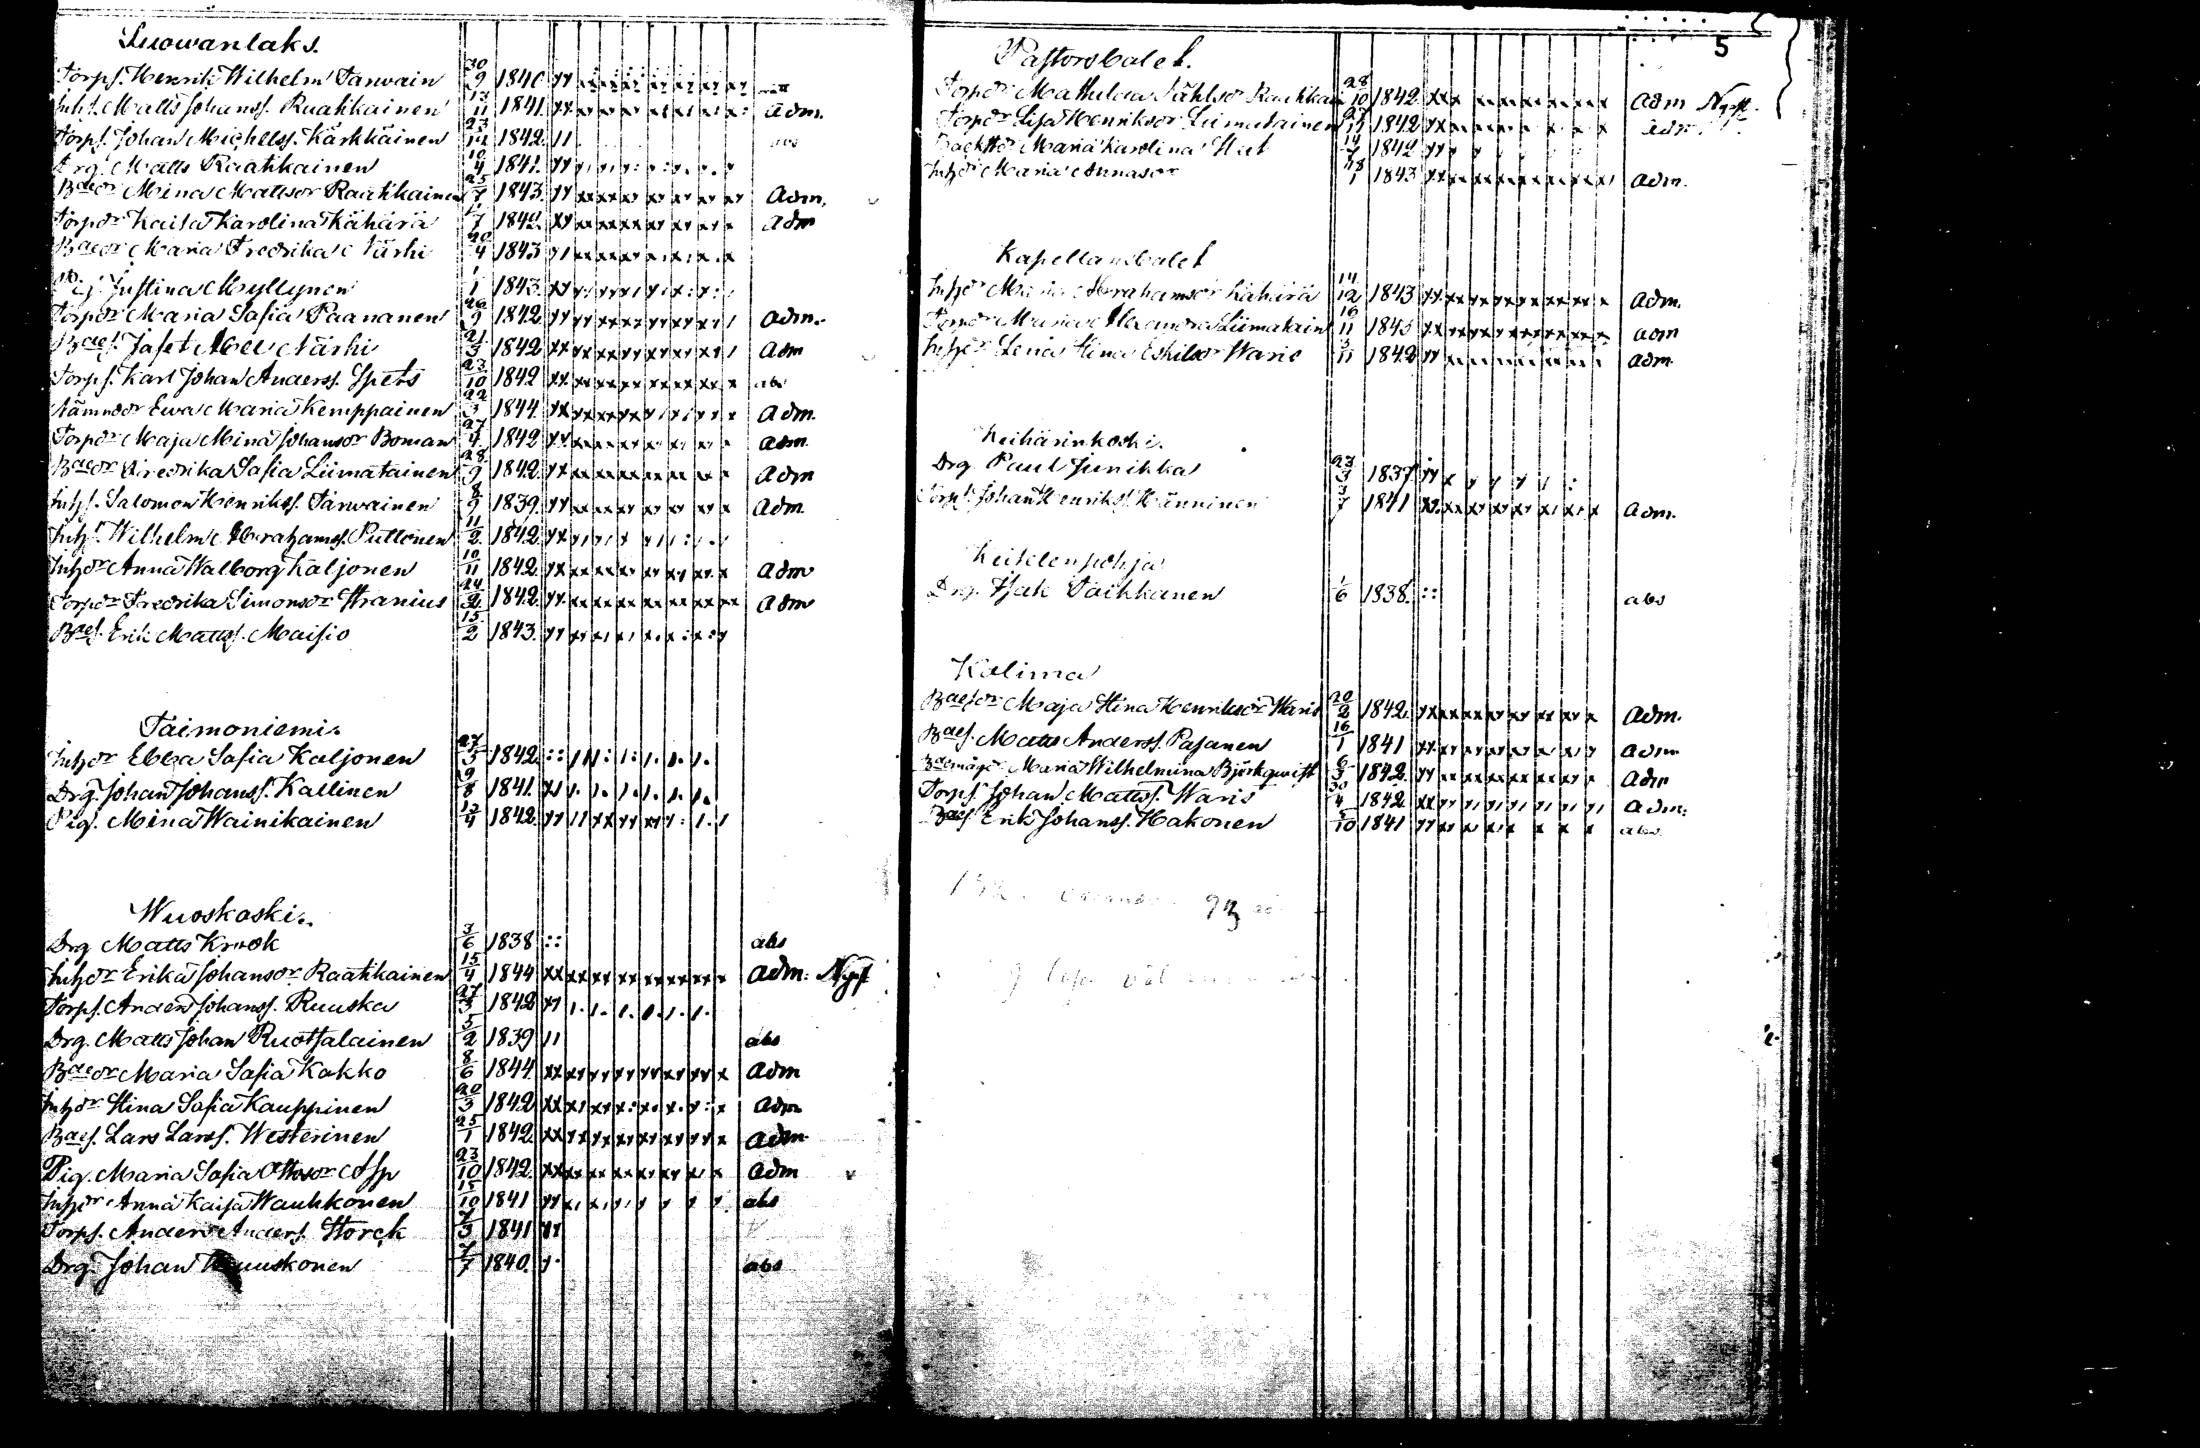 Luowanlaks.
Torps. Henrik Wilhelm Tarwain 30/9 1840
Inhs. Matts Johanss. Raatikainen 13/11 1841 adm.
Torps. Johan Michelss. Kärkkäinen 23/12 1842 abs
Drg. Matts Raatikainen 10/4 1841
Baedr Mina Mattsdr Raatikainen 25/7 1843 Adm.
Torpdr Kaisa Karolina Kähärä 1842 adm
Baedr Maria Fredrika Närhi 20/4 1843
Pig. Justina Myllynen 1/1 1843
Torpdr Maria Sofia Paananen 26/9 1842 adm.
Baes. Jafet Abel Närhi 21/3 1842 adm
Torps. Karl Johan Anderss. Spets 23/10 1842 abs
Nämnddr Ewa Maria Kemppainen 22/3 1844 adm.
Torpdr Maja Mina Johansdr Boman 27/4 1842 adm.
Baedr Fredrika Sofia Liimatainen 28/9 1842 adm
Inhs. Salomon Henrikss. Tarwainen 8/9 1839 adm.
Inhs. Wilhelm Abrahamss. Puttonen 11/2 1842
Inhdr Anna Walborg Kaljonen 10/11 1842 adm
Torpdr Fredrika Simonsdr Stranius 24/2 1842 adm
Baes. Erik Mattss. Maisio 15/2 1843
Taimoniemi.
Inhdr Ebba Sofia Kaljonen 27/5 1842
Drg. Johan Johanss. Kallinen 9/8 1841
Pig. Mina Wainikainen 13/4 1842
Wuoskoski.
Drg Matts Krook 3/6 1838 abs
Inhdr Erika Johansdr Raatikainen 15/4 1844 adm. Nyst
Torps. Anders Johanss. Ruuska 27/3 1842
Drg. Matts Johan Ruotsalainen 5/2 1839 abs
Baedr Maria Sofia Kakko 8/6 1844 adm
Inhdr Stina Sofia Kauppinen 20/3 1842 adm
Baes. Lars Larss. Westerinen 25/1 1842 adm
Pig. Maria Sofia Ottosdr Asp 23/10 1842 adm
Inhdr Anna Kaisa Wauhkonen 15/10 1841 abs
Torps. Anders Anders. Storck 7/3 1841
Drg. Johan 7/7 1840 abs
5
Pastorsbalet.
Torpdr Mathilda Raatikai 28/10 1842 adm Nyst.
Torpdr Lisa Henriksdr Liimatainen 27/11 1842 adm
Maria Karolina 1842
Inhdr Maria Annasdr 18/1 1843 adm.
Kapellansbalet
Inhdr Maria Abrahamsdr Kähärä 14/12 1843 adm.
Torpdr Maria Alexandra Liimatain 16/11 1843 adm
Inhdr Lena Stina Eskilsdr Waris 3/11 1842 adm.
Keihärinkoski.
Drg. Paul Junikka 23/3 1837
Torps. Johan Henrikss. Hänninen 3/7 1841 adm.
Keitelenpohja
Drg. Isak Paikkanen 1/6 1838 abs
Kolima
Baesdr Maja Stina Henriksdr Waris 20/2 1842 adm.
Baes. Matts Anderss. Pasanen 16/1 1841 adm
Maria Wilhelmina Björkqwist 6/3 1842 adm
Torps. Johan Mattss. Waris 30/4 1842 adm.
Baes. Erik Johanss. Hakonen 5/10 1841 abs.